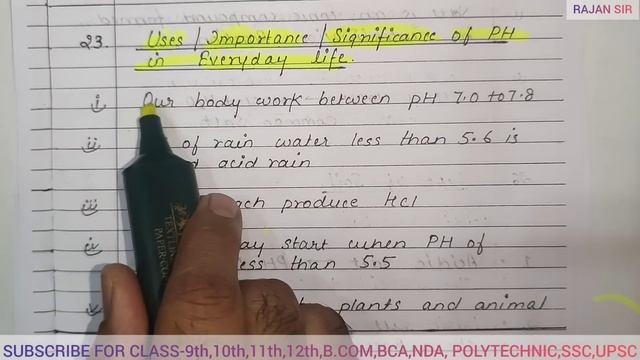 RAJAN SIR
23. Uses / Importance / Significance of PH
in Everyday life.
i Our body work between pH 7.0 to 7.8
ii of rain water less than 5.6 is
acid rain
iii produce HCl
iv start when PH of
than 5.5
plants and animal
SUBSCRIBE FOR CLASS-9th,10th,11th,12th,B.COM,BCA,NDA, POLYTECHNIC,SSC,UPSC